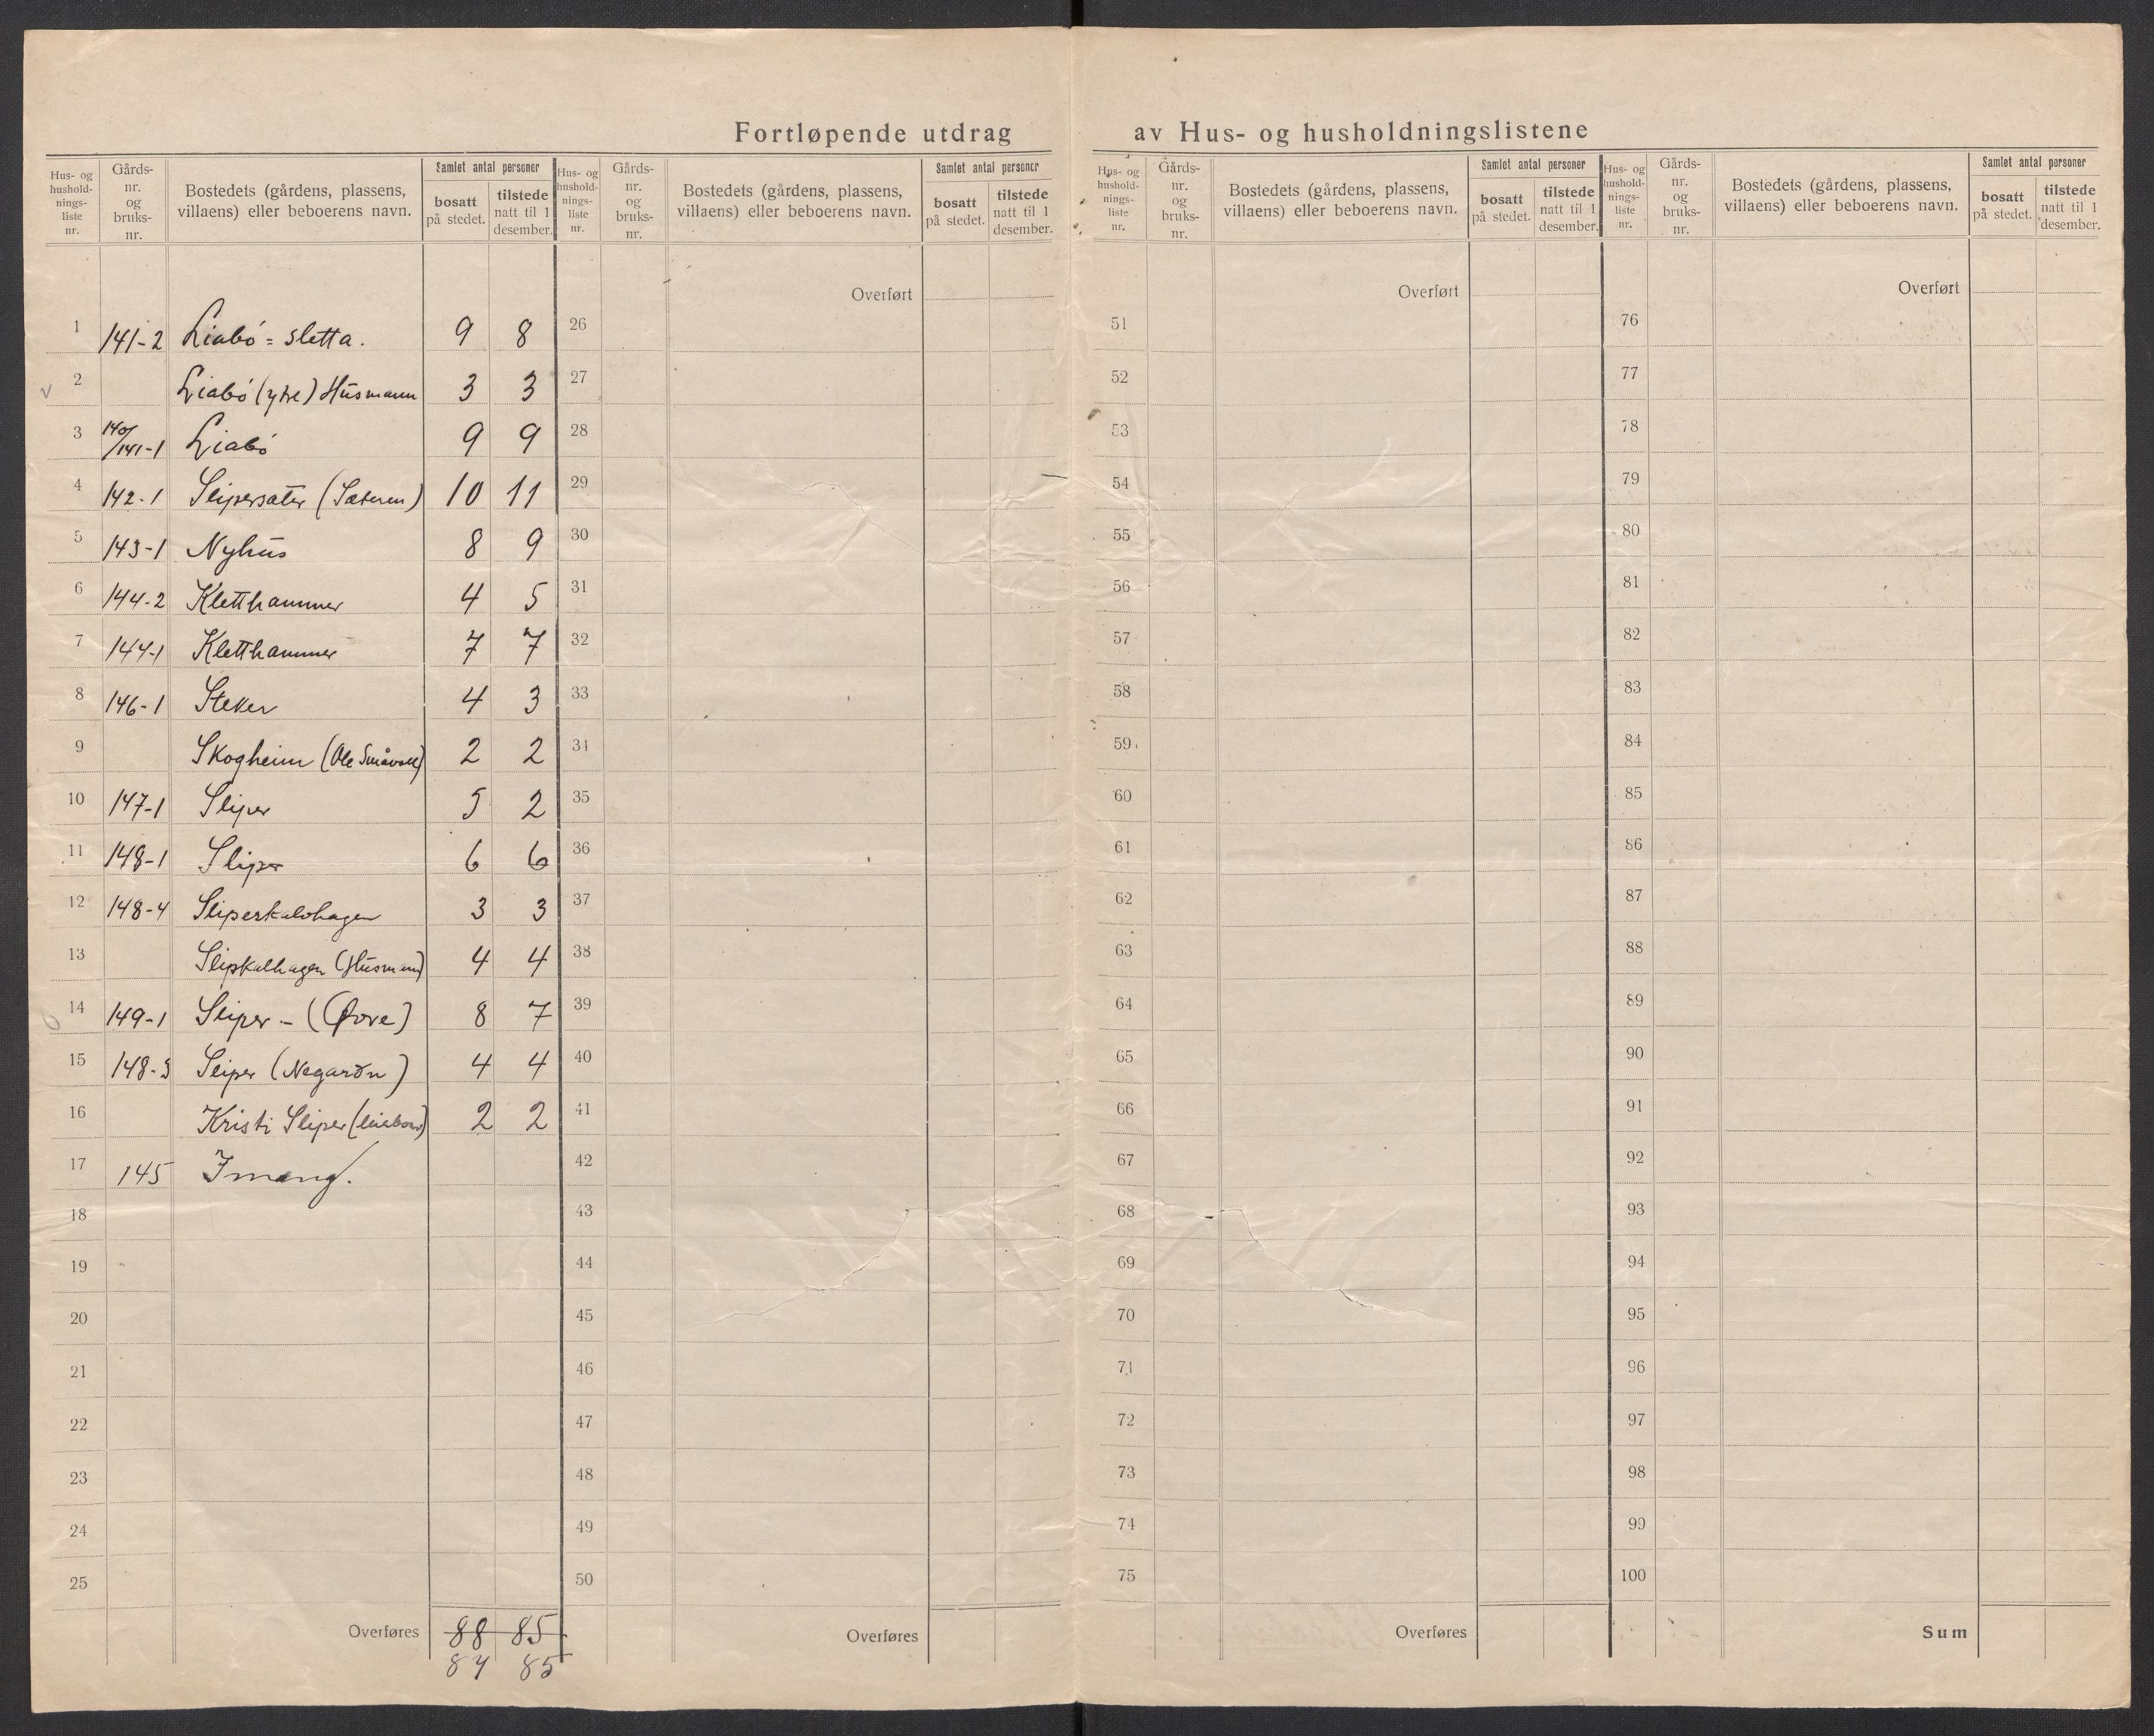 Fortløpende utdrag av Hus- og husholdningslistene
Hus- og hushold-nings-liste nr. | Gårds-nr. og bruks-nr. | Bostedets (gårdens, plassens, villaens) eller beboerens navn. | Samlet antal personer | bosatt på stedet. | tilstede natt til 1 desember.
1 141-2 Liabö = sletta. 9 8
2 Liabö (ytre) Husmann 3 3
3 140/141-1 Liabö 9 9
4 142-1 Slipersæter (Sæteren) 10 11
5 143-1 Nyhus 8 9
6 144-2 Kletthammer 4 5
7 144-1 Kletthammer 7 7
8 146-1 Steker 4 3
9 Skogheim (Ole Småvoll) 2 2
10 147-1 Sliper 5 2
11 148-1 Sliper 6 6
12 148-4 Sliperkalvhagen 3 3
13 Slipkalhagen (Husmann) 4 4
14 149-1 Sliper - (Øvre) 8 7
15 148-3 Sliper (Negardn) 4 4
16 Kristi Sliper 2 2
17 145
18
19
20
21
22
23
24
25
Overføres 88 85
87 85
Hus- og hushold-nings-liste nr. | Gårds-nr. og bruks-nr. | Bostedets (gårdens, plassens, villaens) eller beboerens navn. | Samlet antal personer | bosatt på stedet. | tilstede natt til 1 desember.
Overført
26
27
28
29
30
31
32
33
34
35
36
37
38
39
40
41
42
43
44
45
46
47
48
49
50
Overføres
Hus- og hushold-nings-liste nr. | Gårds-nr. og bruks-nr. | Bostedets (gårdens, plassens, villaens) eller beboerens navn. | Samlet antal personer | bosatt på stedet. | tilstede natt til 1 desember.
Overført
51
52
53
54
55
56
57
58
59
60
61
62
63
64
65
66
67
68
69
70
71
72
73
74
75
Overføres
Hus- og hushold-nings-liste nr. | Gårds-nr. og bruks-nr. | Bostedets (gårdens, plassens, villaens) eller beboerens navn. | Samlet antal personer | bosatt på stedet. | tilstede natt til 1 desember.
Overført
76
77
78
79
80
81
82
83
84
85
86
87
88
89
90
91
92
93
94
95
96
97
98
99
100
Sum